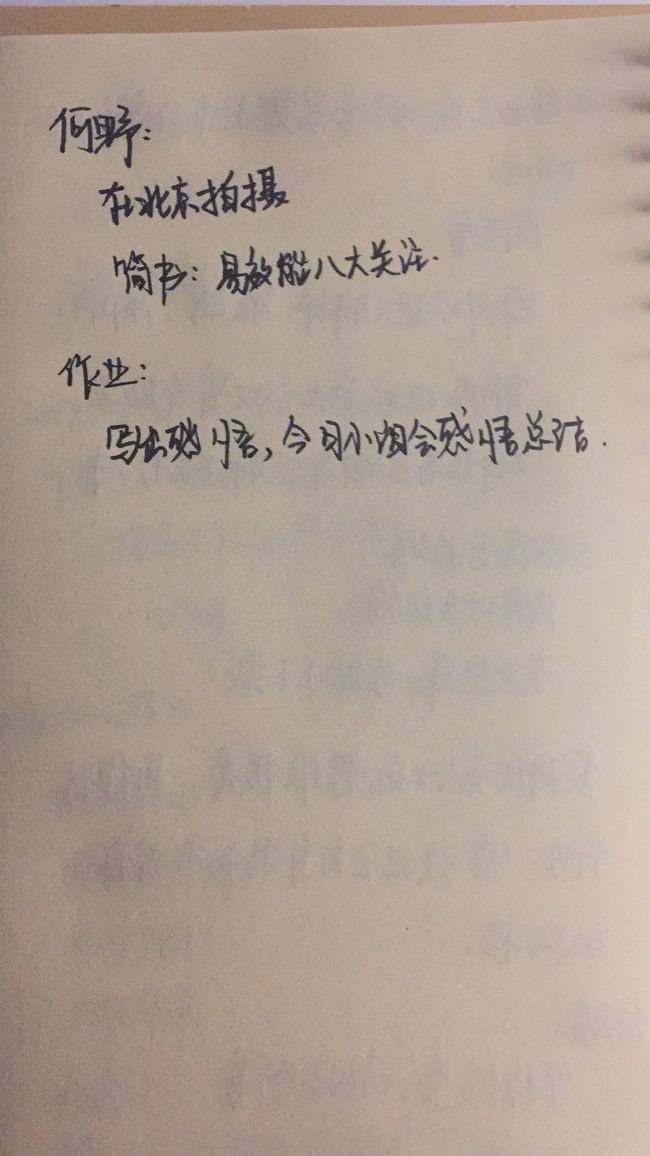 何野:
在北京拍摄
简书: 易效能八大关注.
作业:
写出感悟, 今日小组会感悟总结.